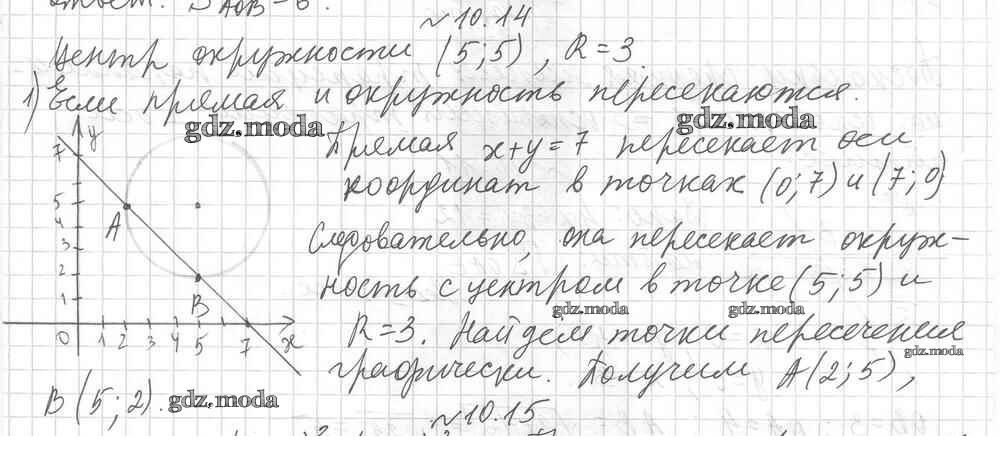 ответ: S AOB = 6.
№ 10.14
Центр окружности (5;5), R = 3.
1) Если прямая и окружность пересекаются.
gdz.moda
gdz.moda
Прямая x+y=7 пересекает оси
координат в точках (0;7) и (7;0)
Следовательно, она пересекает окруж-
ность с центром в точке (5;5) и
gdz.moda
gdz.moda
R=3. Найдём точки пересечения
gdz.moda
графически. Получим A(2;5),
y
7
5
4
3
2
1
A
B
0 1 2 3 4 5 7 x
B(5;2).
gdz.moda
№ 10.15